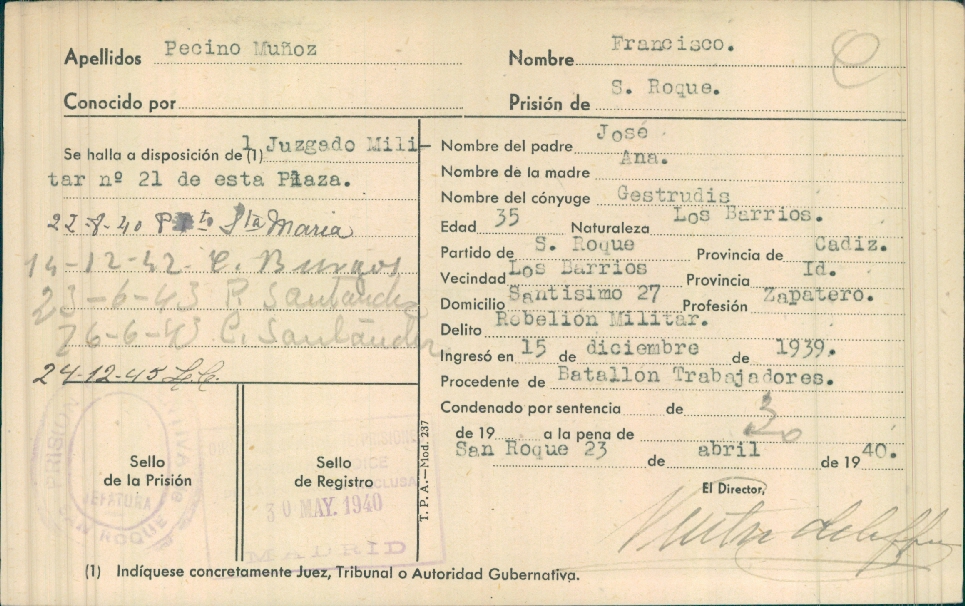 Apellidos Pecino Muñoz
Nombre Francisco.
Conocido por
Prisión de S. Roque.
Se halla a disposición de (1) l Juzgado Mili-
tar nº 21 de esta Plaza.
22-8-40 Pto Sta Maria
14-12-42. C. Burgos
23-6-43 P. Santander
26-6-43 C. Santander.
24-12-45 L.C.
Nombre del padre José
Nombre de la madre Ana.
Nombre del cónyuge Gestrudis
Edad 35 Naturaleza Los Barrios.
Partido de S. Roque Provincia de Cadiz.
Vecindad Los Barrios Provincia Id.
Domicilio Santisimo 27 Profesión Zapatero.
Delito Rebelión Militar.
Ingresó en 15 de diciembre de 1939.
Procedente de Batallon Trabajadores.
Condenado por sentencia de
de 19 a la pena de 30
San Roque 23 de abril de 19 40.
El Director,
Sello
de la Prisión
PRISION
JEFATURA
SAN ROQUE
Sello
de Registro
30 MAY. 1940
MADRID
T. P. A.—Mod. 237
(1) Indíquese concretamente Juez, Tribunal o Autoridad Gubernativa.